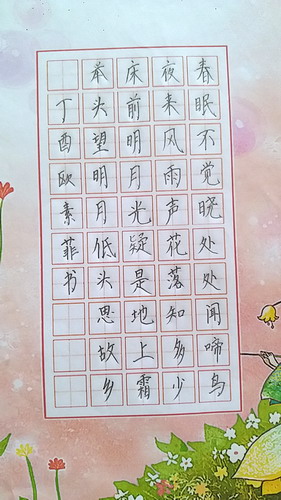 春眠不觉晓处处闻啼鸟
夜来风雨声花落知多少
床前明月光疑是地上霜
举头望明月低头思故乡
丁酉欧素菲书